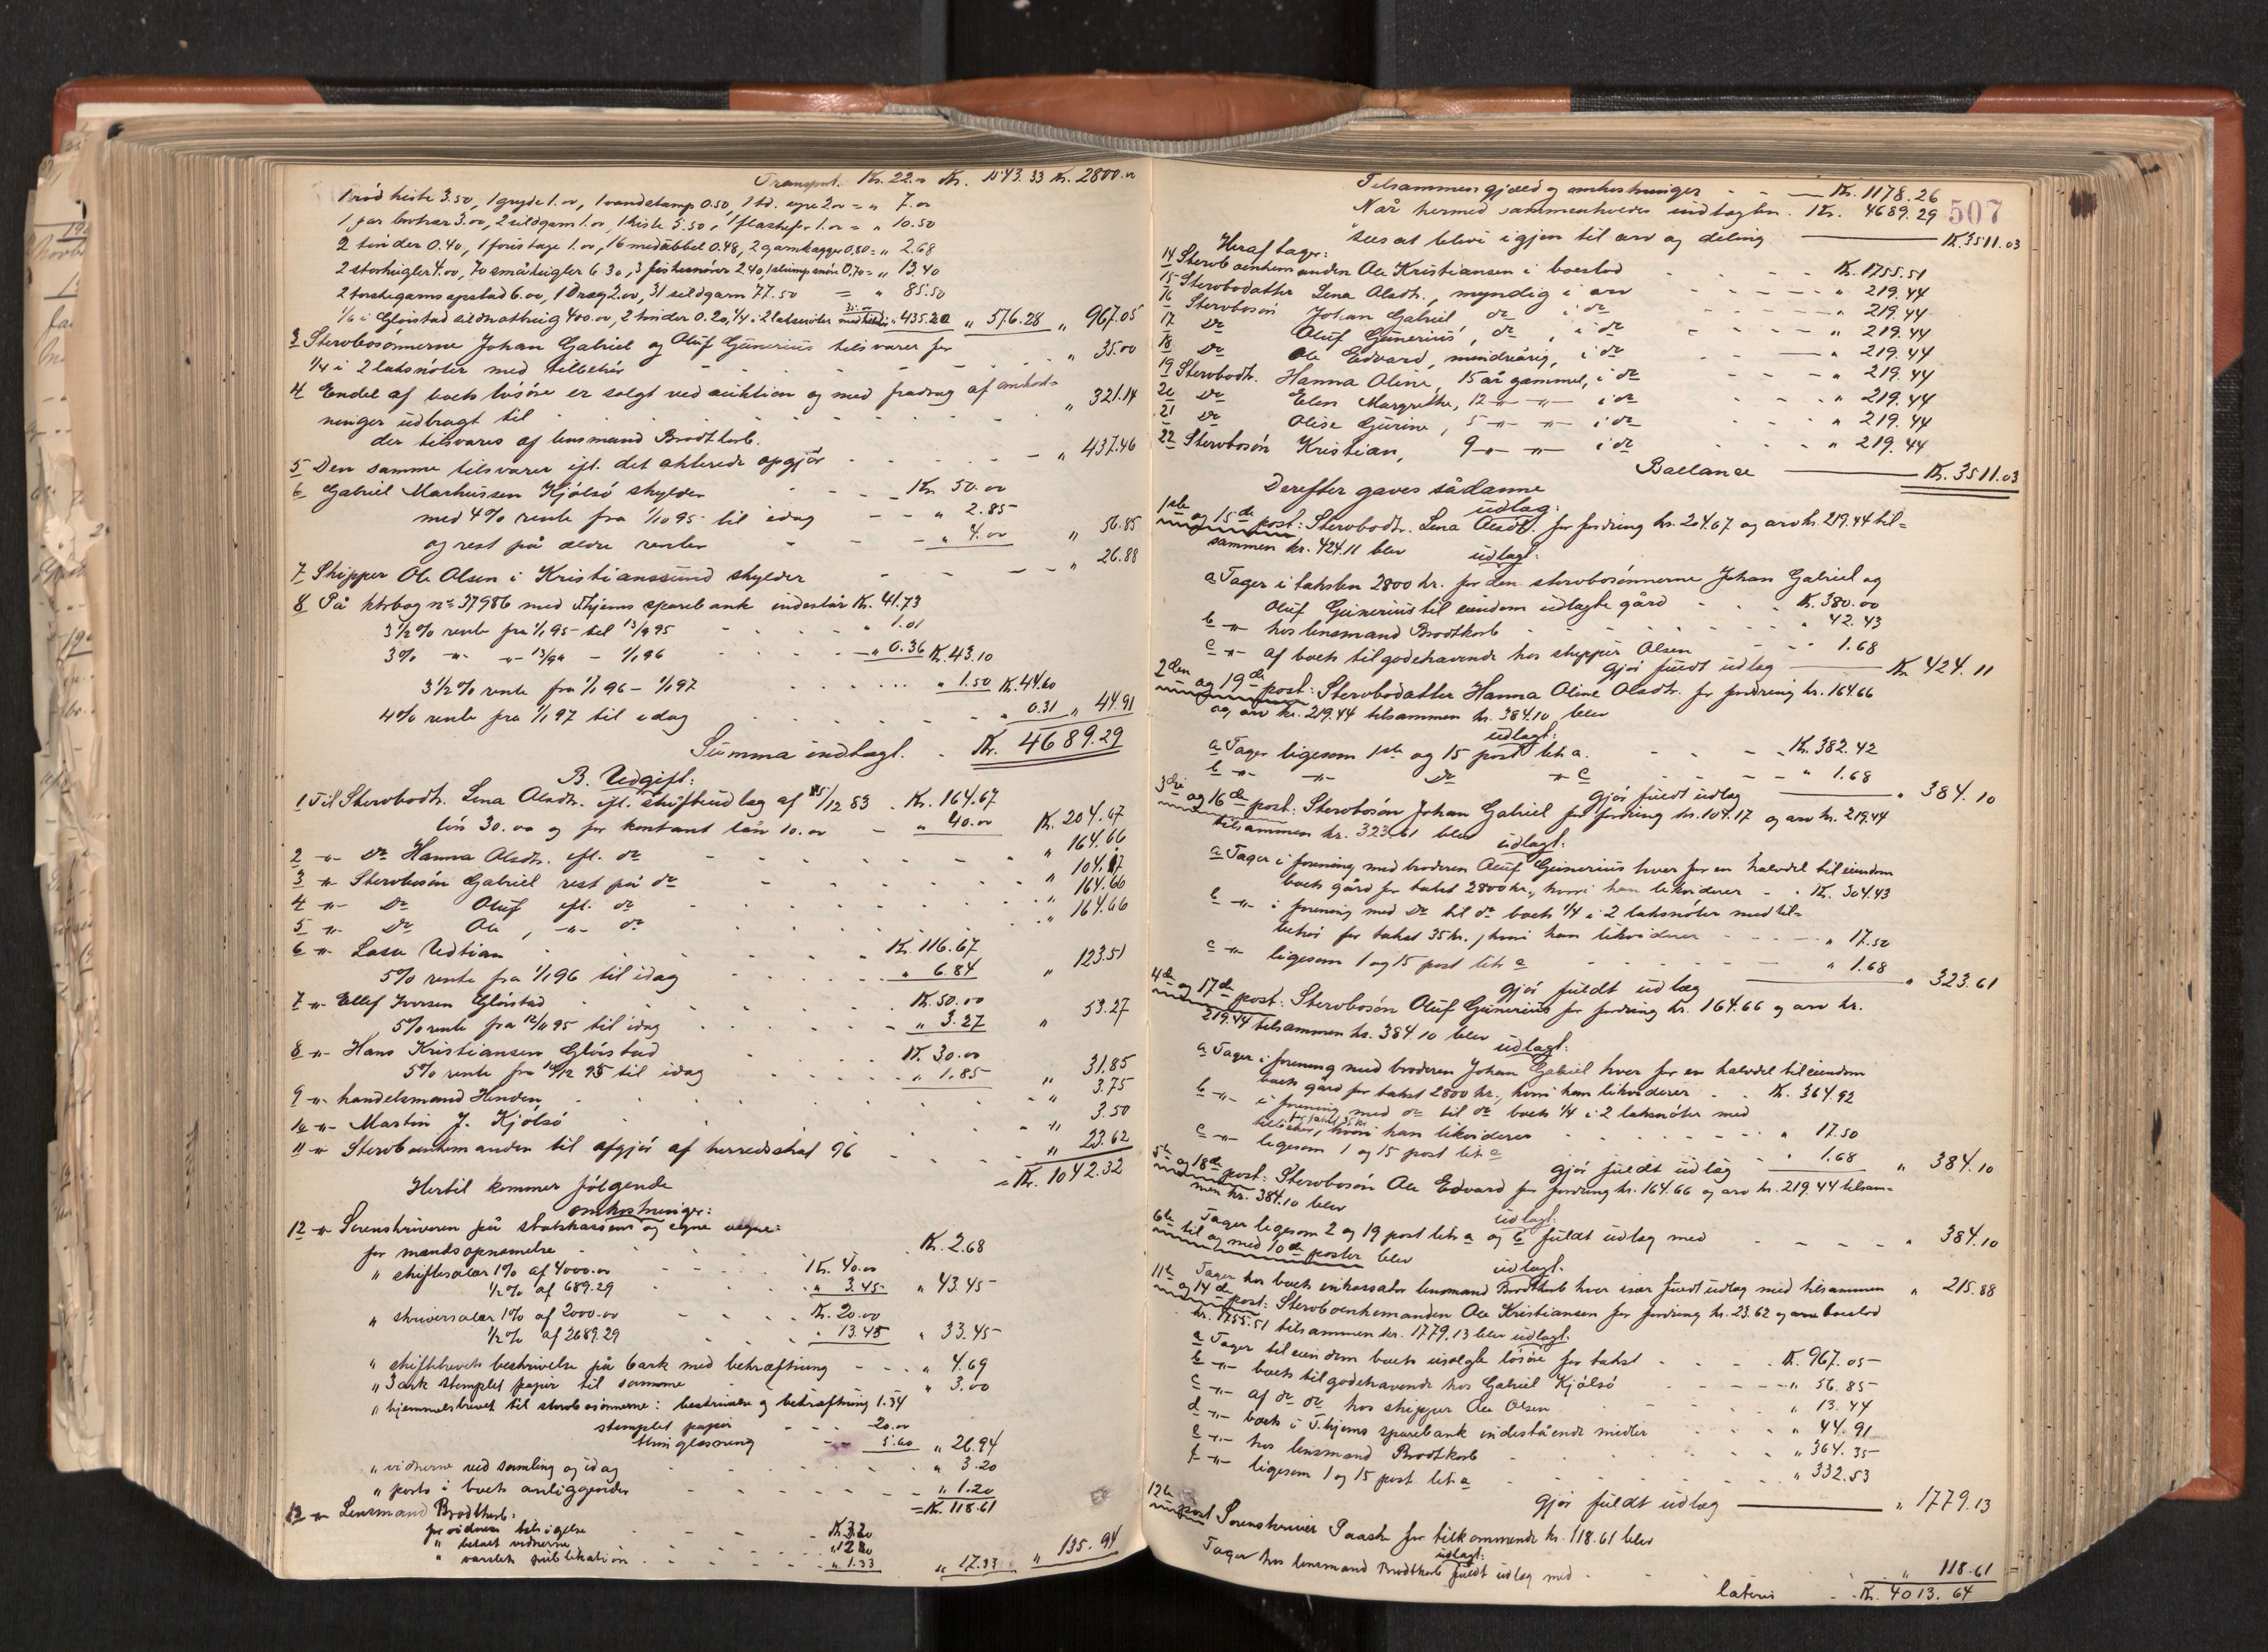 Transport. Kr. 22.00 Kr. 1543.33 Kr. 2800.00
1 rød kiste 3.50, 1 gryde 1.00, 1 vandstamp 0.50, 1 td. 2.00 = " 7.00
1 par 3.00, 2 sildgarn 1.00, 1 kiste 5.50, 1 1.00 = " 10.50
2 tinder 0.40, 1 1.00, 16 0.48, 2 garnkagger 0.80 = " 2.68
2 4.00, 70 små 6.30, 3 fiskesnører 2.40, 1 slump snøre 0.70 = " 13.40
2 torskegarns 6.00, 1 Dræg 2.00, 31 sildgarn 77.50 = " 85.50
1/6 i Gløistad sildnotbrug 400.00, 2 tinder 0.20, 1/4 i 2 laksenøter med tilbehør 35.00 " 435.20 " 576.28 " 967.05
3 Stervbosønnerne Johan Gabriel og Oluf Gunerius tilsvarer for
1/4 i 2 laksnøter med tilbehør - - - " 35.00
4 Endel af boets løsøre er solgt ved auktion og med fradrag af omkost-
ninger udbragt til - - - " 321.14
der tilsvares af lensmand Brodtkorb.
5 Den samme tilsvarer ifl. det akterede opgjør - - - " 437.46
6 Gabriel Markussen Kjølsø skylder - - Kr. 50.00
med 4% rente fra 1/10 95 til idag - - " 2.85
og rest på ældre renter - - " 4.00 " 56.85
7 Skipper Ole Olsen i Kristianssund skylder - - - " 26.88
8 På ktrbog nr 37986 med Thjems sparebank indestår Kr. 41.73
3 1/2% rente fra 1/1 95 til 13/9 95 - - " 1.01
3% -"- -"- 13/9 95 - 1/1 96 - - " 0.36 Kr. 43.10
3 1/2% rente fra 1/1 96 - 1/1 97 - - " 1.50 Kr. 44.60
4% rente fra 1/1 97 til idag - - " 0.31 " 44.91
Summa indtægt. - Kr. 4689.29
B. Udgift:
1 Til Stervbodtr. Lena Olsdtr. ifl. skifteudlæg af 15/12 83 . Kr. 164.67
løn 30.00 og for kontant lån 10.00 - " 40.00 Kr. 204.67
2 -"- Do Hanna Olsdtr. ifl. do - - - " 164.66
3 -"- Stervbosøn Gabriel rest på do - - - " 104.17
4 -"- Do Oluf ifl. do - - - " 164.66
5 -"- Do Ole, -"- do - - - " 164.66
6 -"- Lasse Udtian - - Kr. 116.67
5% rente fra 1/1 96 til idag - - " 6.84 " 123.51
7 -"- Ellef Iversen Gløistad - - Kr. 50.00
5% rente fra 12/11 95 til idag - - " 3.27 " 53.27
8 -"- Hans Kristiansen Gløistad - - Kr. 30.00
5% rente fra 10/12 95 til idag - - " 1.85 " 31.85
9 -"- handelsmand Henden - - - " 3.75
10 -"- Martin J. Kjølsø - - - " 3.50
11 -"- Stervboenkemanden til afgjør af herredsskat 96 - - " 23.62
= Kr. 1042.32
Hertil kommer følgende
omkostninger:
12 -"- Sorenskriveren på statskassens og egne vegne:
for mandsopnævnelse - - Kr. 2.68
" skiftesalær 1% af 4000.00 - - Kr. 40.00
1/2% af 689.29 - - " 3.45 " 43.45
" skriversalær 1% af 2000.00 - - Kr. 20.00
1/2% af 2689.29 - - " 13.45 " 33.45
" skiftebrevets beskrivelse på 6 ark med bekræftning - - " 4.69
" 3 ark stemplet papir til samme - - " 3.00
" hjemmelsbrevet til stervbosønnerne: beskrivelse og bekræftning 1.34
stemplet papir - - 20.00
thinglæsning - - 5.60 " 26.94
" vidnerne ved samling og idag - - " 3.20
" porto i boets anliggender - - " 1.20
= Kr. 118.61
13 -"- Lensmand Brodtkorb:
for vidners tilsigelse - - Kr. 3.20
" betalt vidnerne - - " 12.80
" varslets publikation - - " 1.33 " 17.33 " 135.94
Tilsammen gjæld og omkostninger - - Kr. 1178.26
507
Når hermed sammenholdes indtægten. Kr. 4689.29
sees at blive igjen til arv og deling - Kr. 3511.03
Heraf tager:
14 Stervboenkemanden Ole Kristiansen i boeslod - - Kr. 1755.51
15 Stervbodatter Lena Olsdtr., myndig i arv - - " 219.44
16 Stervbosøn Johan Gabriel do i do - - " 219.44
17 Do Oluf Gunerius, do, i do - - " 219.44
18 Do Ole Edvard, mindreårig, i do - - " 219.44
19 Stervbodtr. Hanna Oline, 15 år gammel, i do - - " 219.44
20 Do Elen Margrethe, 12 -"- -"- i do - - " 219.44
21 Do Olise Gurine, 5 -"- -"- i do - - " 219.44
22 Stervbosøn Kristian, 9 -"- -"- i do - - " 219.44
Ballance - Kr. 3511.03
Derefter gaves sådanne
udlæg:
1ste og 15de post: Stervbodtr. Lena Olsdtr. for fordring kr. 204.67 og arv kr. 219.44 til=
sammen kr. 424.11 blev
udlagt:
a Tager i taksten 2800 kr. for den stervbosønnerne Johan Gabriel og
Oluf Gunerius til eiendom udlagte gård - - Kr. 380.00
b -"- hos lensmand Brodtkorb - - " 42.43
c -"- af boets tilgodehavende hos skipper Olsen - - " 1.68
gjør fuldt udlæg - Kr. 424.11
2den og 19de post: Stervbodatter Hanna Oline Olsdtr. for fordring kr. 164.66
og arv kr. 219.44 tilsammen kr. 384.10 blev
udlagt:
a Tager ligesom 1ste og 15 post litr a. - - Kr. 382.42
b -"- -"- Do -"- c - - " 1.68
gjør fuldt udlæg - " 384.10
3die og 16de post: Stervbosøn Johan Gabriel for fordring kr. 104.17 og arv kr. 219.44
tilsammen kr. 323.61 blev
udlagt:
a Tager i forening med broderen Oluf Gunerius hver for en halvdel til eiendom
boets gård for takst 2800 kr., hvori han likviderer - - Kr. 304.43
b -"- i forening med Do til do boets 1/4 i 2 laksnøter med til=
behør for takst 35 kr., hvori han likviderer - - " 17.50
c -"- ligesom 1 og 15 post litr c - - " 1.68
gjør fuldt udlæg - " 323.61
4de og 17de post: Stervbosøn Oluf Gunerius for fordring kr. 164.66 og arv kr.
219.44 tilsammen kr. 384.10 blev
udlagt:
a Tager i forening med broderen Johan Gabriel hver for en halvdel til eiendom
boets gård for takst 2800 kr., hvori han likviderer - - Kr. 364.92
b -"- i forening med do til do boets 1/4 i 2 laksnøter med
tilbehør, for takst 35 kr. hvori han likviderer - - " 17.50
c -"- ligesom 1 og 15 post litr c - - " 1.68
gjør fuldt udlæg - " 384.10
5te og 18de post: Stervbosøn Ole Edvard for fordring kr. 164.66 og arv kr. 219.44 tilsam=
men kr. 384.10 blev
udlagt:
Tager ligesom 2 og 19 post litr a og b fuldt udlæg med - - " 384.10
6te til og med 10de poster blev
udlagt:
Tager hos boets inkassator lensmand Brodtkorb hver især fuldt udlæg med tilsammen " 215.88
11te og 14de post: Stervboenkemanden Ole Kristiansen for fordring kr. 23.62 og arv boeslod
kr. 1755.51 tilsammen kr. 1779.13 blev udlagt:
a Tager til eiendom boets usolgte løsøre for takst - - Kr. 967.05
b -"- boets tilgodehavende hos Gabriel Kjølsø - - " 56.85
c -"- af do do hos skipper Ole Olsen - - " 13.44
d -"- boets i T.hjems sparebank indestående midler - - " 44.91
e -"- hos lensmand Brodtkorb - - " 364.35
f -"- ligesom 1 og 15 post litr a - - " 332.53
gjør fuldt udlæg - " 1779.13
12te post Sorenskriver Paasche for tilkommende kr. 118.61 blev
udlagt:
Tager hos lensmand Brodtkorb fuldt udlæg med - - " 118.61
lateris - Kr. 4013.64